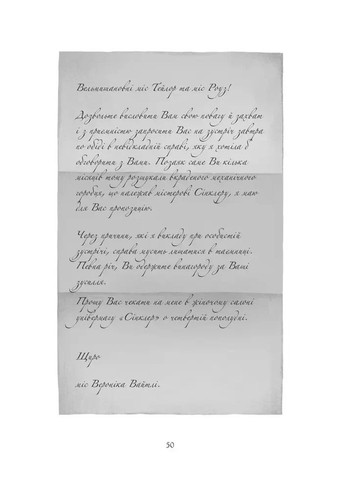 Вельмишановні міс Тейлор та міс Роуз!
Дозвольте висловити Вам свою повагу й захват
і з приємністю запросити Вас на зустріч завтра
по обіді в невідкладній справі, яку я хотіла б
обговорити з Вами. Позаяк саме Ви кілька
місяців тому розшукали вкраденого механічного
горобця, що належав містерові Сінклеру, я маю
для Вас пропозицію.
Через причини, які я викладу при особистій
зустрічі, справа мусить лишатися в таємниці.
Певна річ, Ви одержите винагороду за Ваші
зусилля.
Прошу Вас чекати на мене в жіночому салоні
універмагу «Сінклер» о четвертій пополудні.
Щиро
міс Вероніка Вайтлі.
50